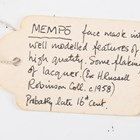 MEMPO face mask in
well modelled features of
high quality. Some flaking
of lacquer. (Ex H. Russell
Robinson Coll. c. 1958)
Probably late 16th cent.